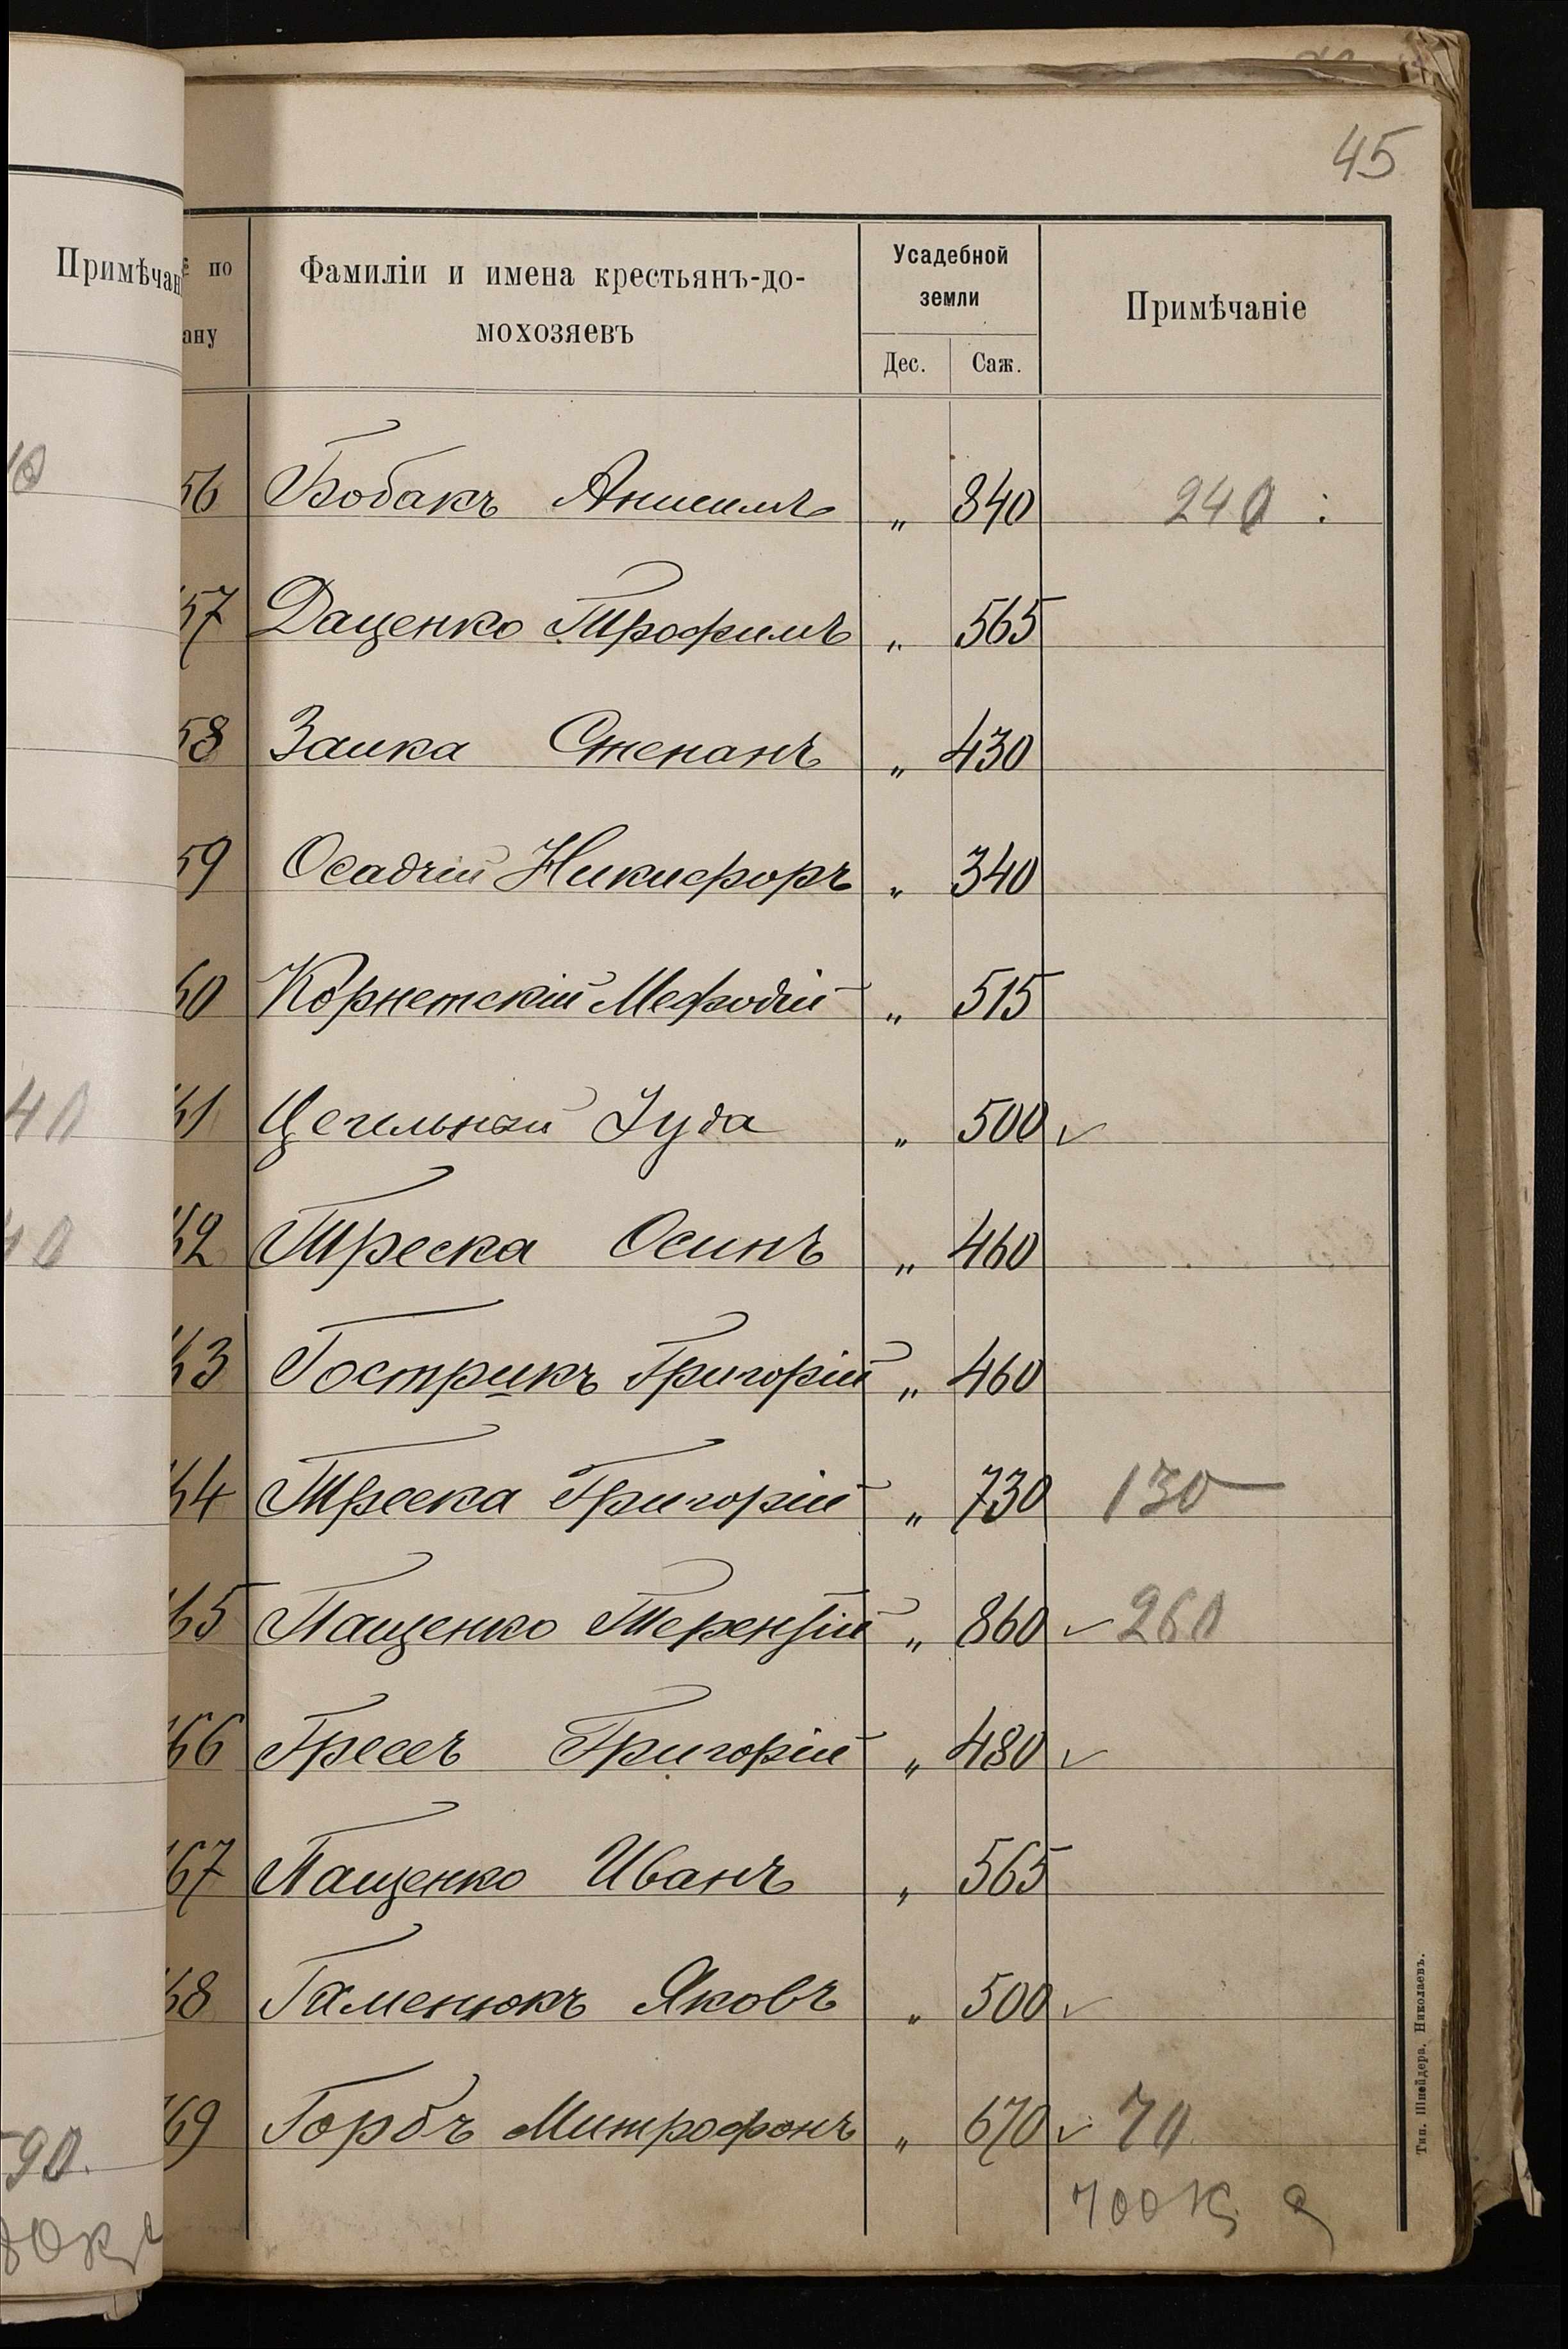 45
Примѣчан
по
ану
Фамиліи и имена крестьянъ-до-
мохозяевъ
Усадебной
земли
Дес. Саж.
Примѣчаніе
56 Бобакъ Анисимъ „ 840 240 :
57 Даценко Трофимъ „ 565
58 Заика Степанъ „ 430
59 Осадчій Никифоръ „ 340
60 Корнетскій Мефодій „ 515
61 Цегельный Іуда „ 500 ✓
62 Треска Осипъ „ 460
63 Гострикъ Григорій „ 460
64 Треска Григорій „ 730 130
65 Пащенко Терентій „ 860 ✓ 260
66 Гресъ Григорій „ 480 ✓
67 Пащенко Иванъ „ 565
68 Гаменюкъ Яковъ „ 500 ✓
69 Горбъ Митрофонъ „ 670 ✓ 70
700 к
40
90.
Тип. Шнейдера, Николаевъ.